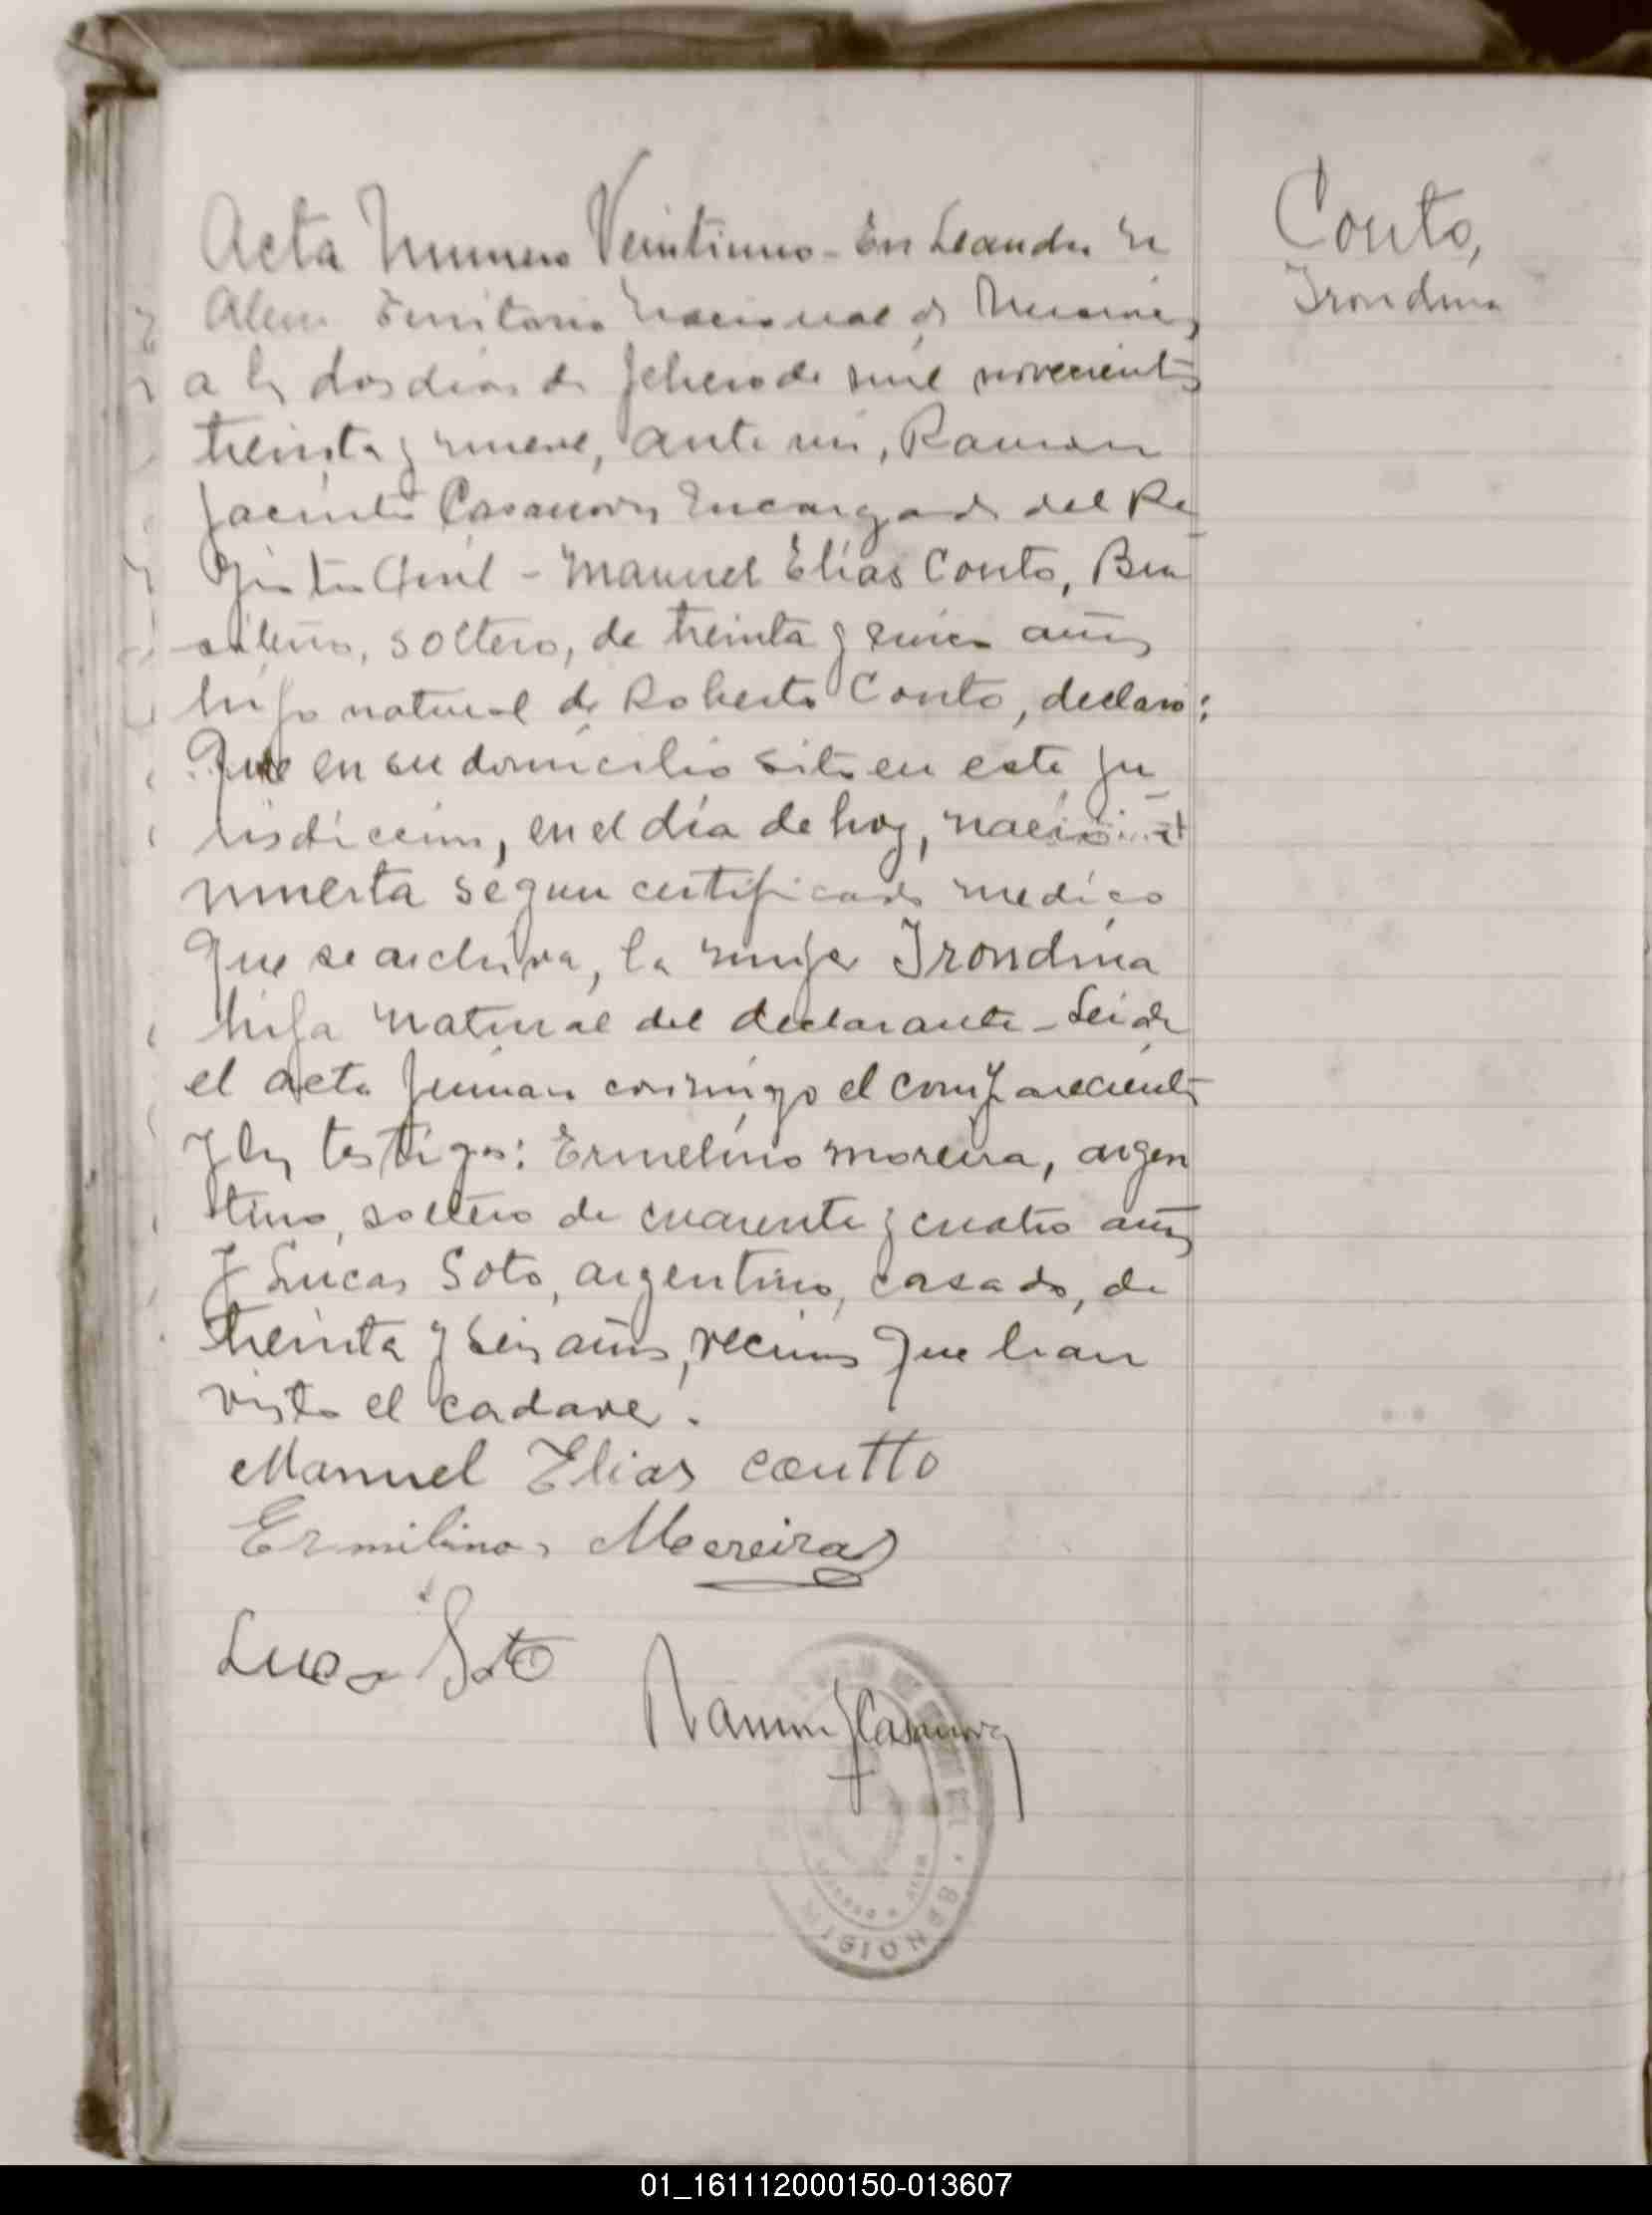 Acta Numero Veintiuno - En Leandro N
Alem Territorio Nacional de Misiones,
a los dos dias de febrero de mil novecientos
treinta y nueve, ante mi, Ramon
Jacinto Casanova Encargado del Re
gistro Civil - Manuel Elías Couto, Bra
sileño, soltero, de treinta y cinco años
hijo natural de Roberto Couto, declaro:
Que en su domicilio sito en esta ju
risdiccion, en el día de hoy, nació
muerta segun certificado medico
que se archiva, la mujer Irondina
hija natural del declarante - Leida
el acta firman conmigo el compareciente
y los testigos: Ermelino Moreira, argen
tino, soltero de cuarenta y cuatro años
y Lucas Soto, argentino, casado, de
treinta y seis años, vecinos que han
visto el cadaver.
Manuel Elias coutto
Ermilino Moreira
Lucas Soto
Ramon J Casanova
MISIONES
Couto,
Irondina
01_161112000150-013607